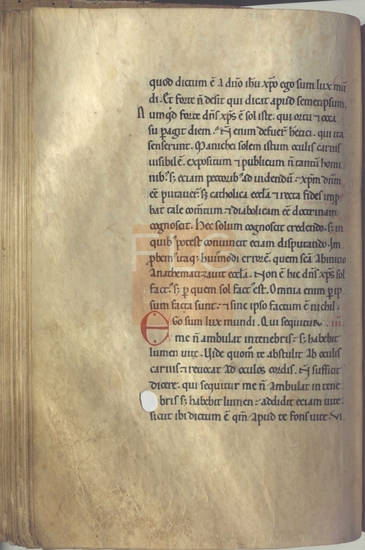 quod dictum ē a dn̄o ih̄u xp̄o ego sum lux mun
di. Et forte n̄ desit qui dicat apud semetipsum.
Numqd forte dn̄s xp̄s ē sol iste. qui ortu & occa
su pagit diem. N̄ enim defuer̄ heretici. qui ita
senserunt. Manichei solem istum oculis carnis
visibilē. expositum & publicum n̄ tantū homi
nibꝫ. sꝫ eciam pecoribꝫ ad uidendū. xp̄m dn̄m
eē putauerꝫ. sꝫ catholica eccl̄a & recta fides imp
bat tale & diabolicam eē doctrinam
cognoscit. Nec solum cognoscit credendo. sꝫ in
quibꝫ potest conuincit eciam disputando. Im
phemꝰ itaqꝫ huimodi errorē. quem scā ab inicio
Anathematizauit eccl̄a. Non ē hic dn̄s xp̄s sol
factꝰ. sꝫ p quem sol factꝰ est. Omnia enim p ip
sum facta sunt. & sine ipso factum ē nichil.
Ego sum lux mundi. Qui sequitur
me n̄ ambulat in tenebris. sꝫ habebit
lumen uite. Vide quom̄ te abstulit ab oculis
carnis. & reuocat ad oculos cordis. N̄ sufficit
dicere. qui sequitur me n̄ ambulat in tene
bris sꝫ habebit lumen. addidit eciam uite.
sicut ibi dictum ē qm̄ apud te fons uite.